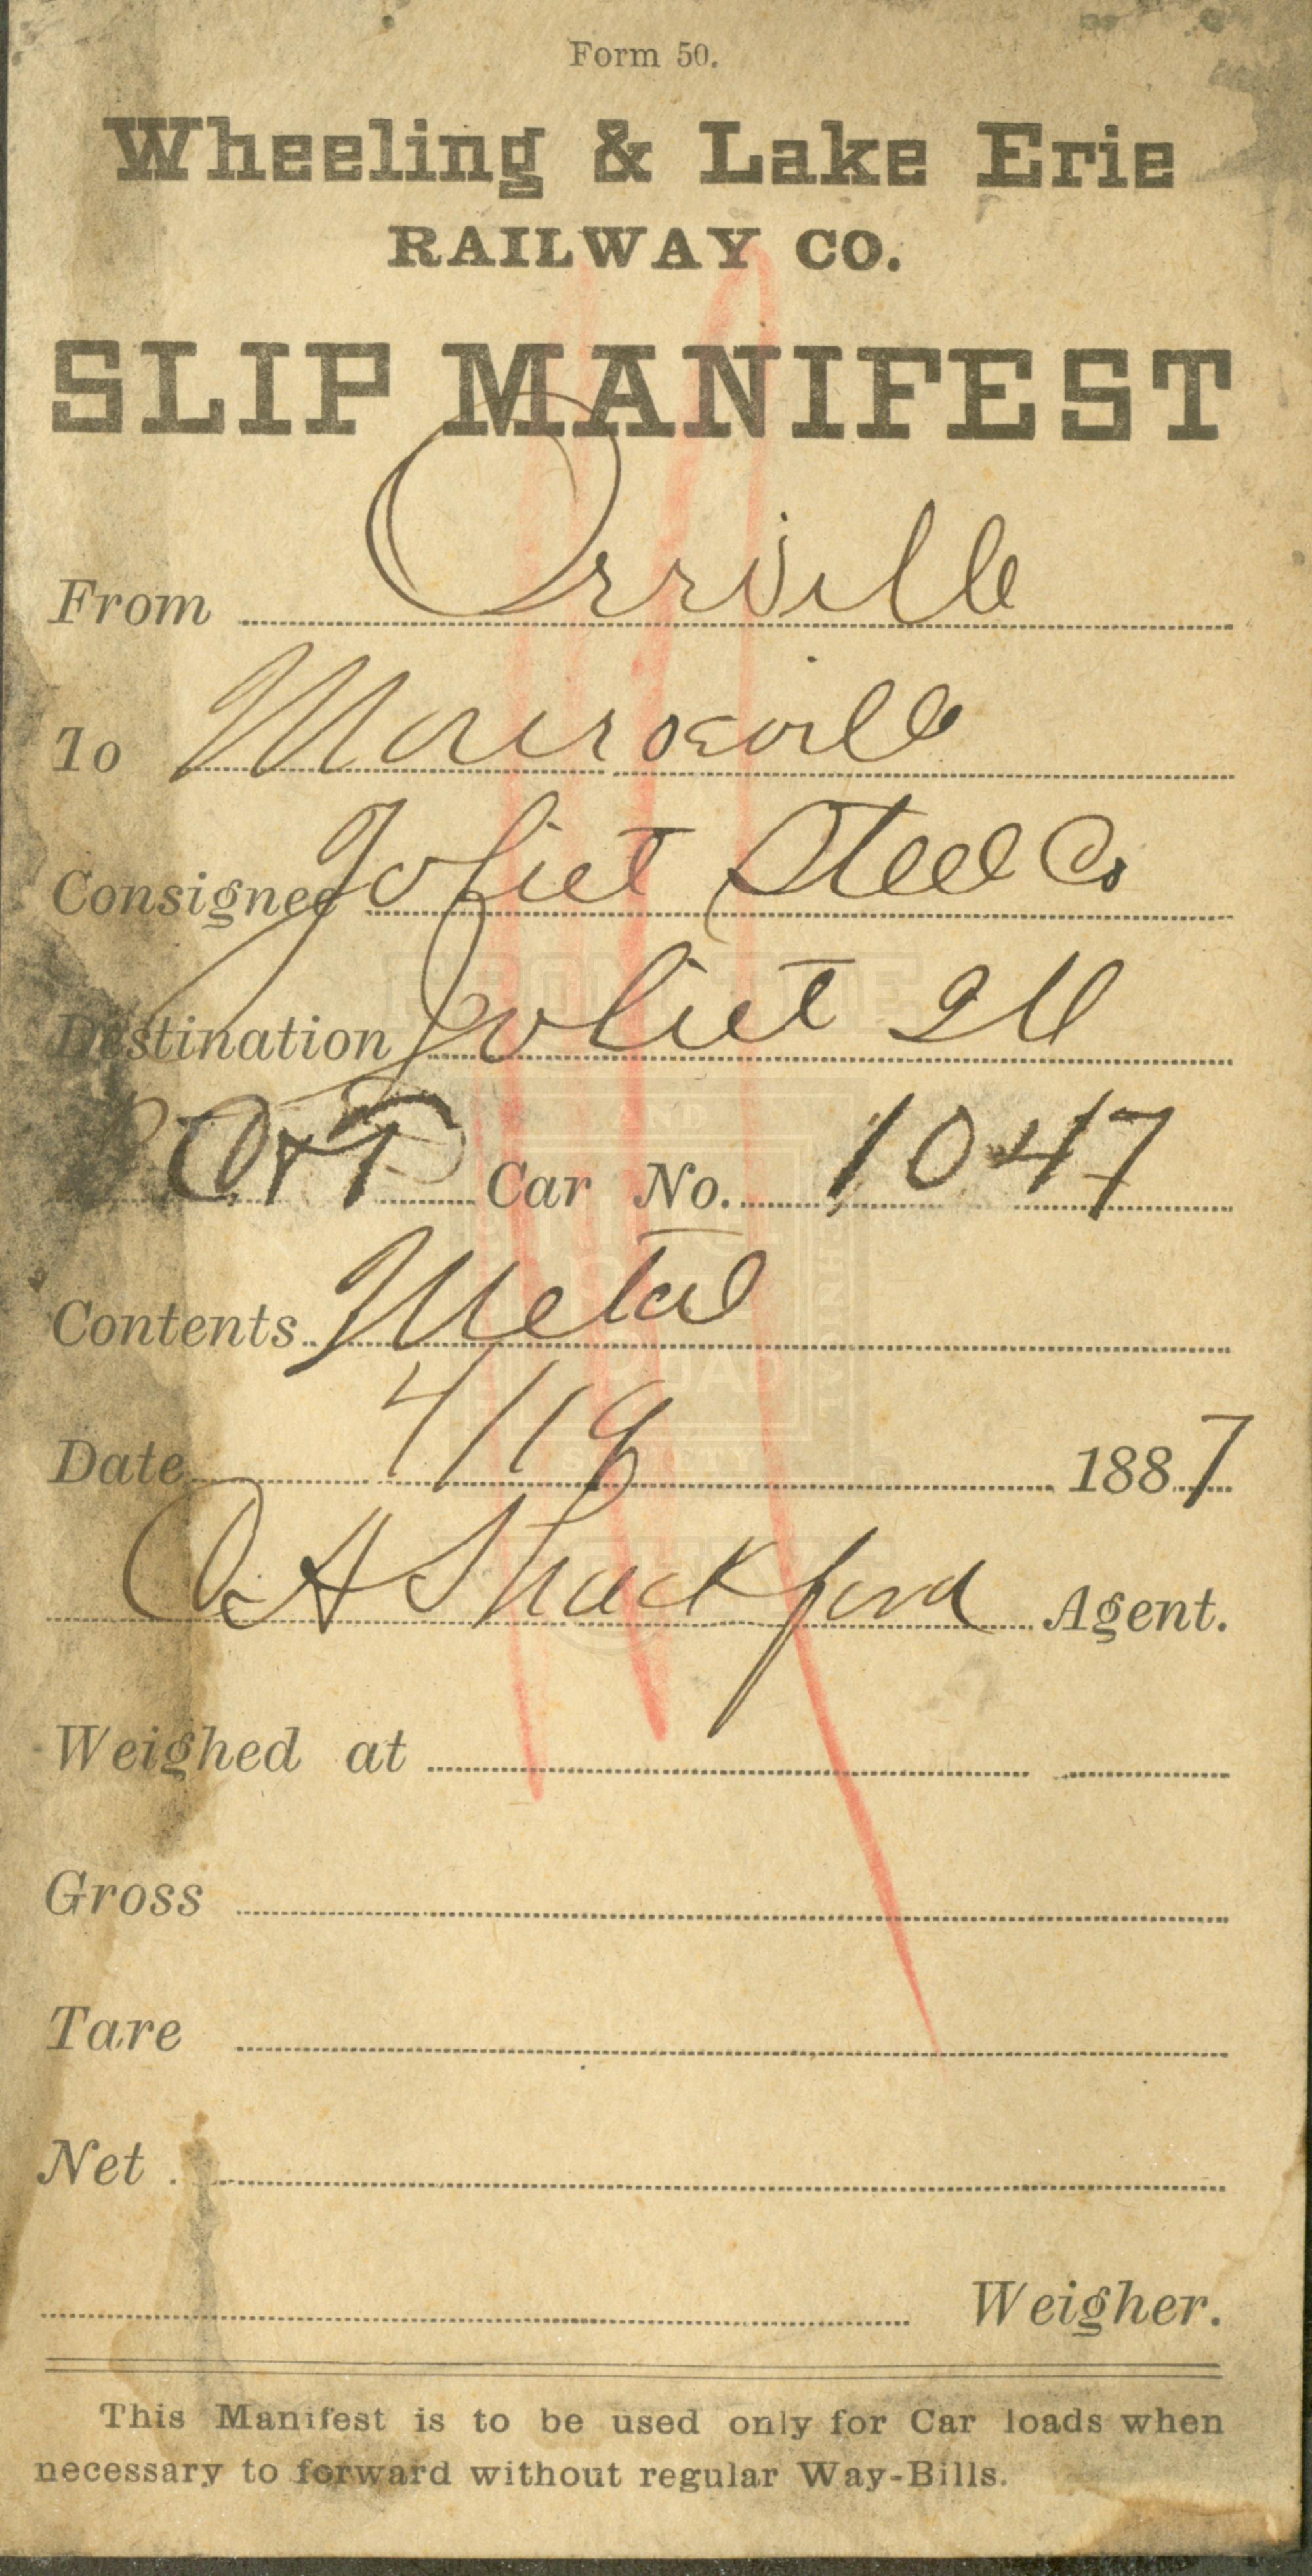 Form 50.
Wheeling & Lake Erie
RAILWAY CO.
SLIP MANIFEST
From Orrville
To Monroeville
Consignee Joliet Steel Co
Destination Joliet Ill
Car No. 1047
Contents Metal
Date 4/19 1887
A Shackford Agent.
Weighed at
Gross
Tare
Net
Weigher.
This Manifest is to be used only for Car loads when
necessary to forward without regular Way-Bills.